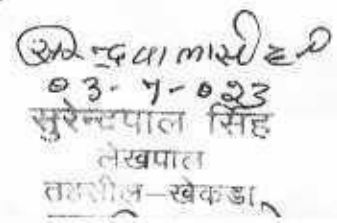 03-7-023
सुरेन्द्रपाल सिंह
लेखपाल
तहसील-खेकडा